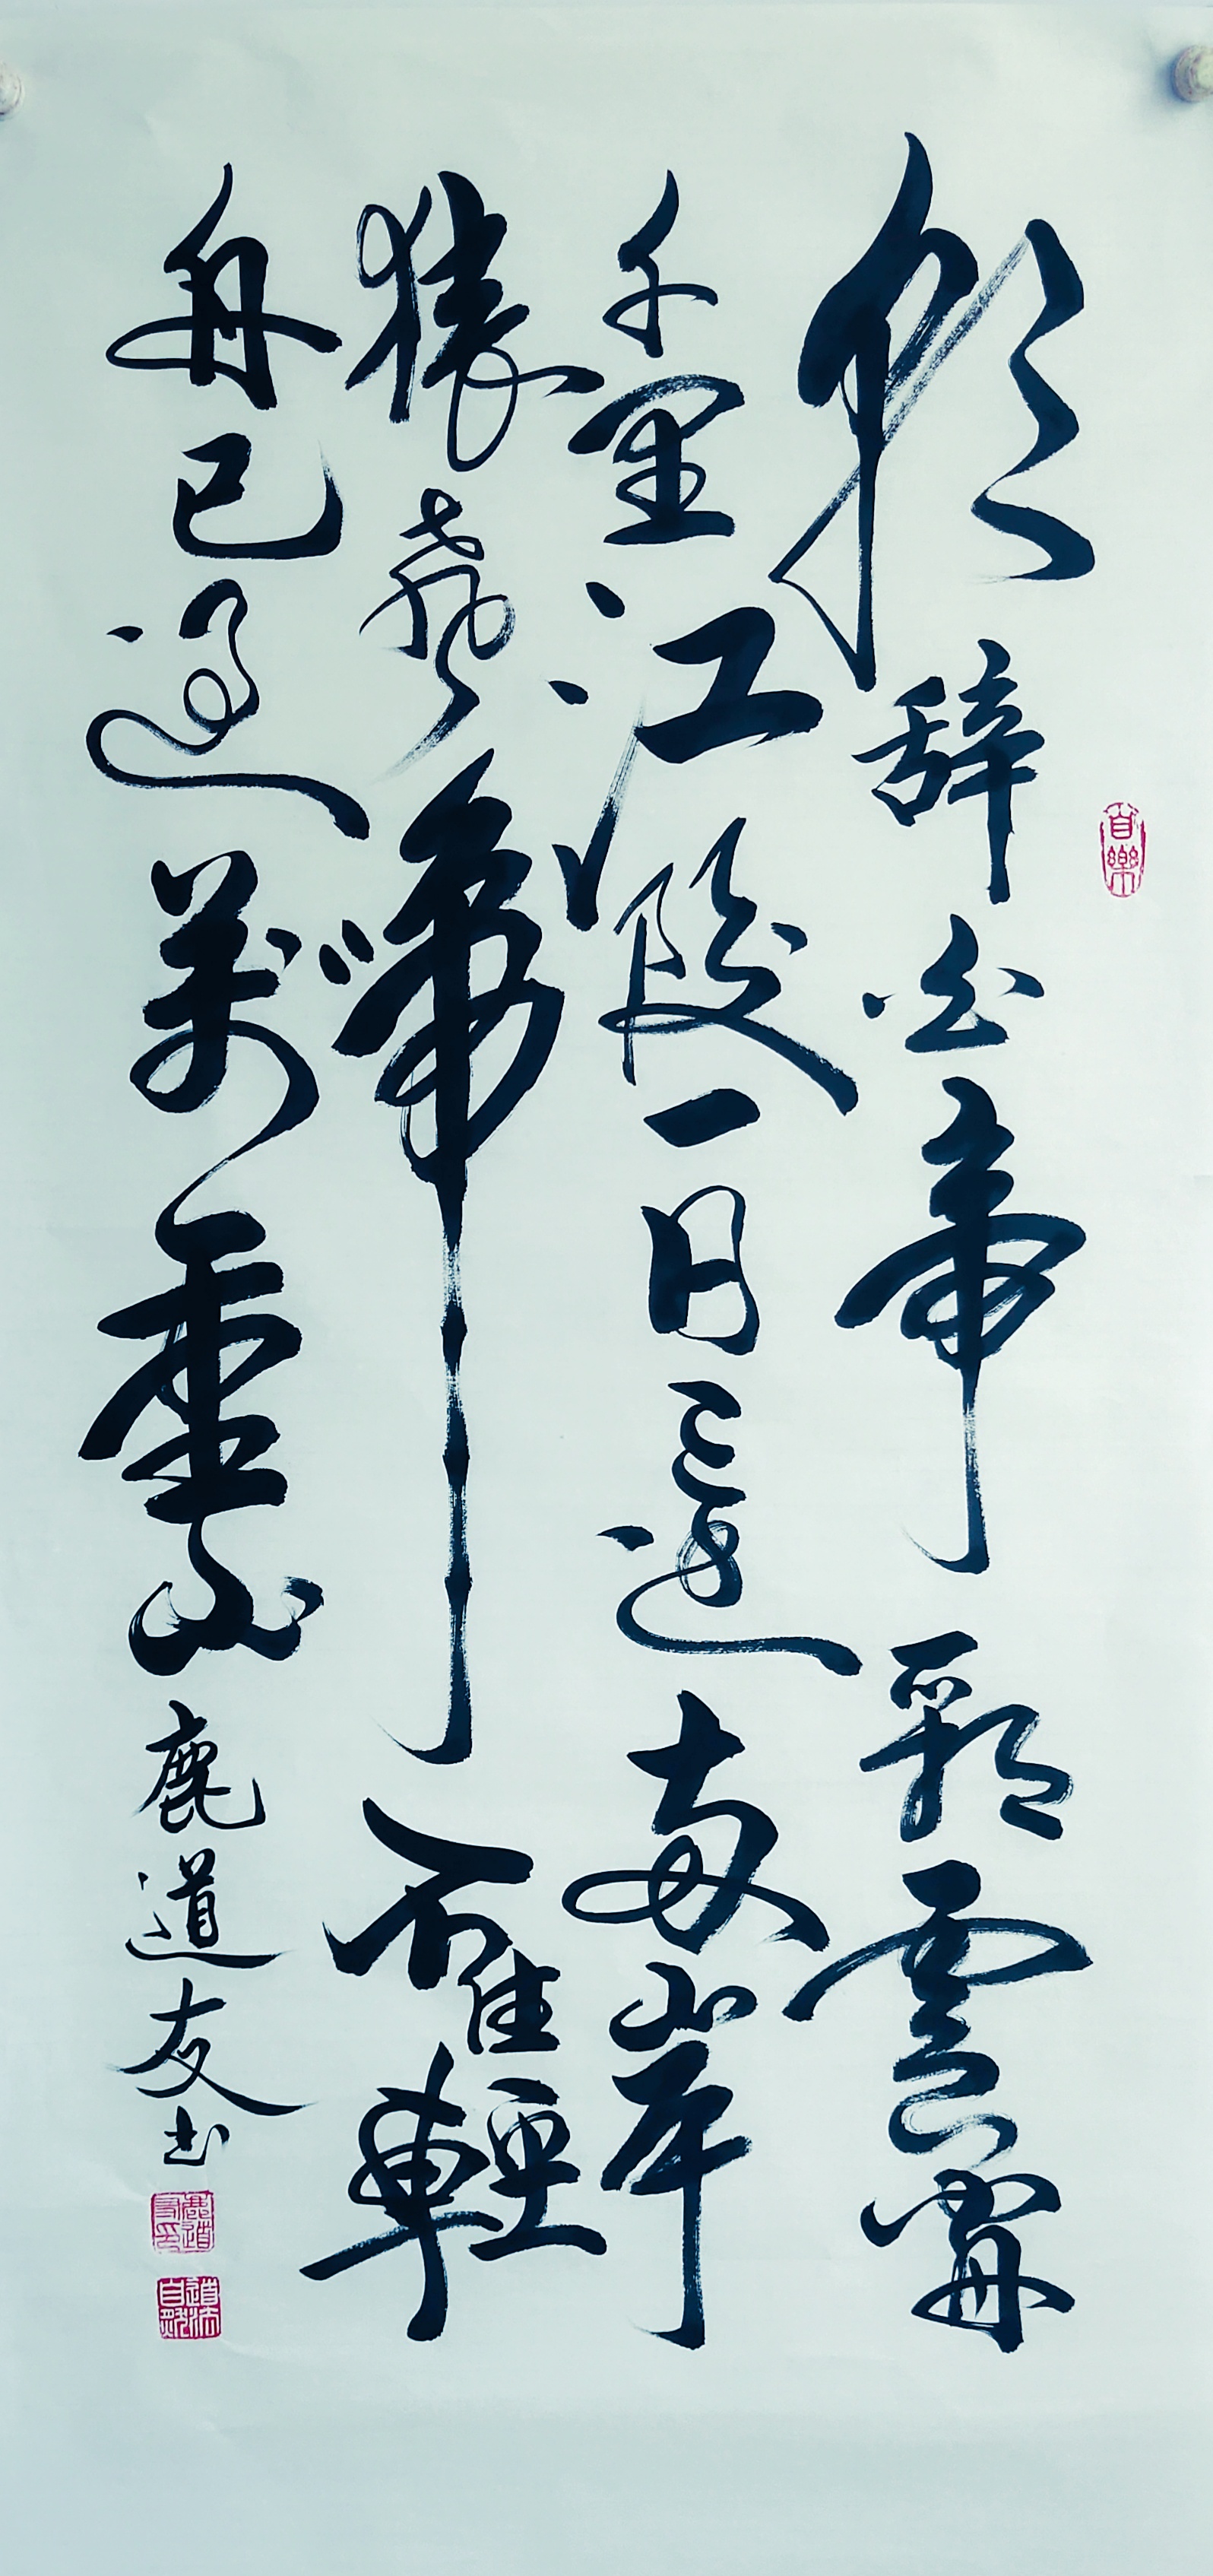 朝辞白帝彩雲間
千里江陵一日還兩岸
猿聲啼不住輕
舟已過萬重山
鹿道友书
鹿道友印
道法自然